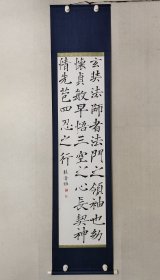 玄奘法師者法門之領袖也幼
懷貞敏早悟三空之心長契神
情先苞四忍之行